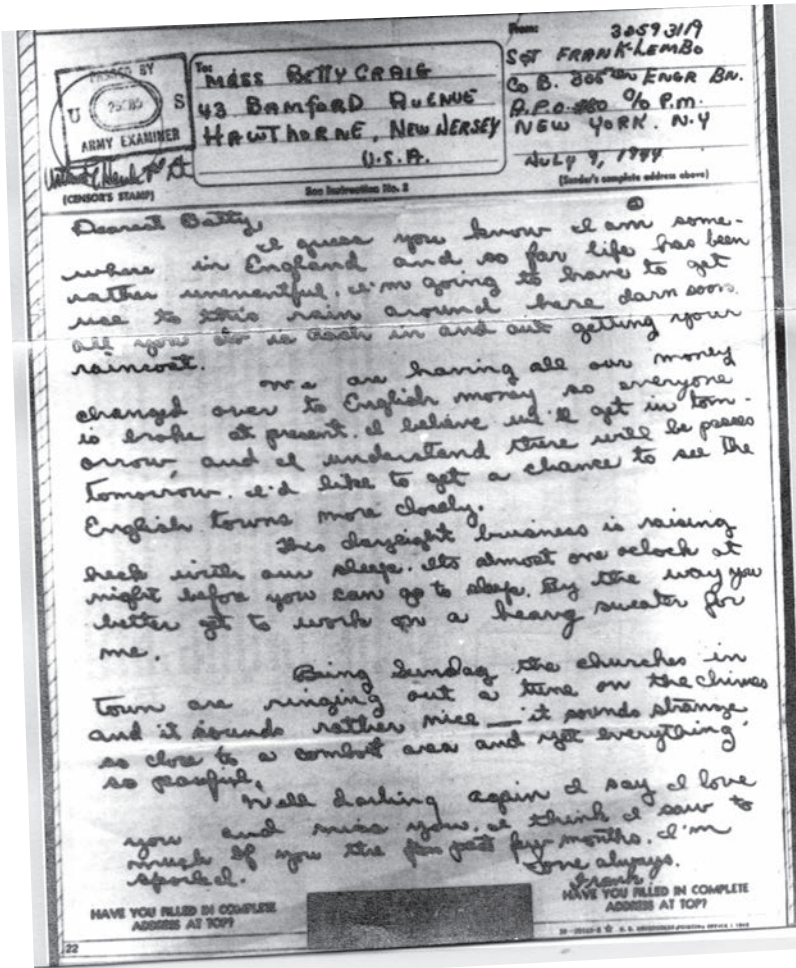 From:
32593119
PASSED BY
U S
ARMY EXAMINER
(CENSOR'S STAMP)
To:
MISS BETTY CRAIG
43 BAMFORD AVENUE
HAWTHORNE, NEW JERSEY
U.S.A.
See Instruction No. 2
SGT FRANK LEMBO
Co B. 305TH ENGR BN.
A.P.O. 80 % P.M.
NEW YORK. N.Y
JULY 9, 1944
(Sender's complete address above)
Dearest Betty,
I guess you know I am some-
where in England and so far life has been
rather uneventful. I'm going to have to get
use to this rain around here darn soon.
all you do is dash in and out getting your
raincoat.
We are having all our money
changed over to English money so everyone
is broke at present. I believe we'll get in tom-
orrow, and I understand there will be passes
tomorrow. I'd like to get a chance to see the
English towns more closely.
This daylight business is raising
heck with our sleep. Its almost one oclock at
night before you can go to sleep. By the way you
better get to work on a heavy sweater for
me.
Being Sunday the churches in
town are ringing out a tune on the chimes
and it sounds rather nice — it sounds strange
so close to a combat area and yet everything
so peaceful.
Well darling again I say I love
you and miss you. I think I saw to
much of you the past few months. I'm
spoiled.
Love always.
Frank.
HAVE YOU FILLED IN COMPLETE
ADDRESS AT TOP?
HAVE YOU FILLED IN COMPLETE
ADDRESS AT TOP?
22